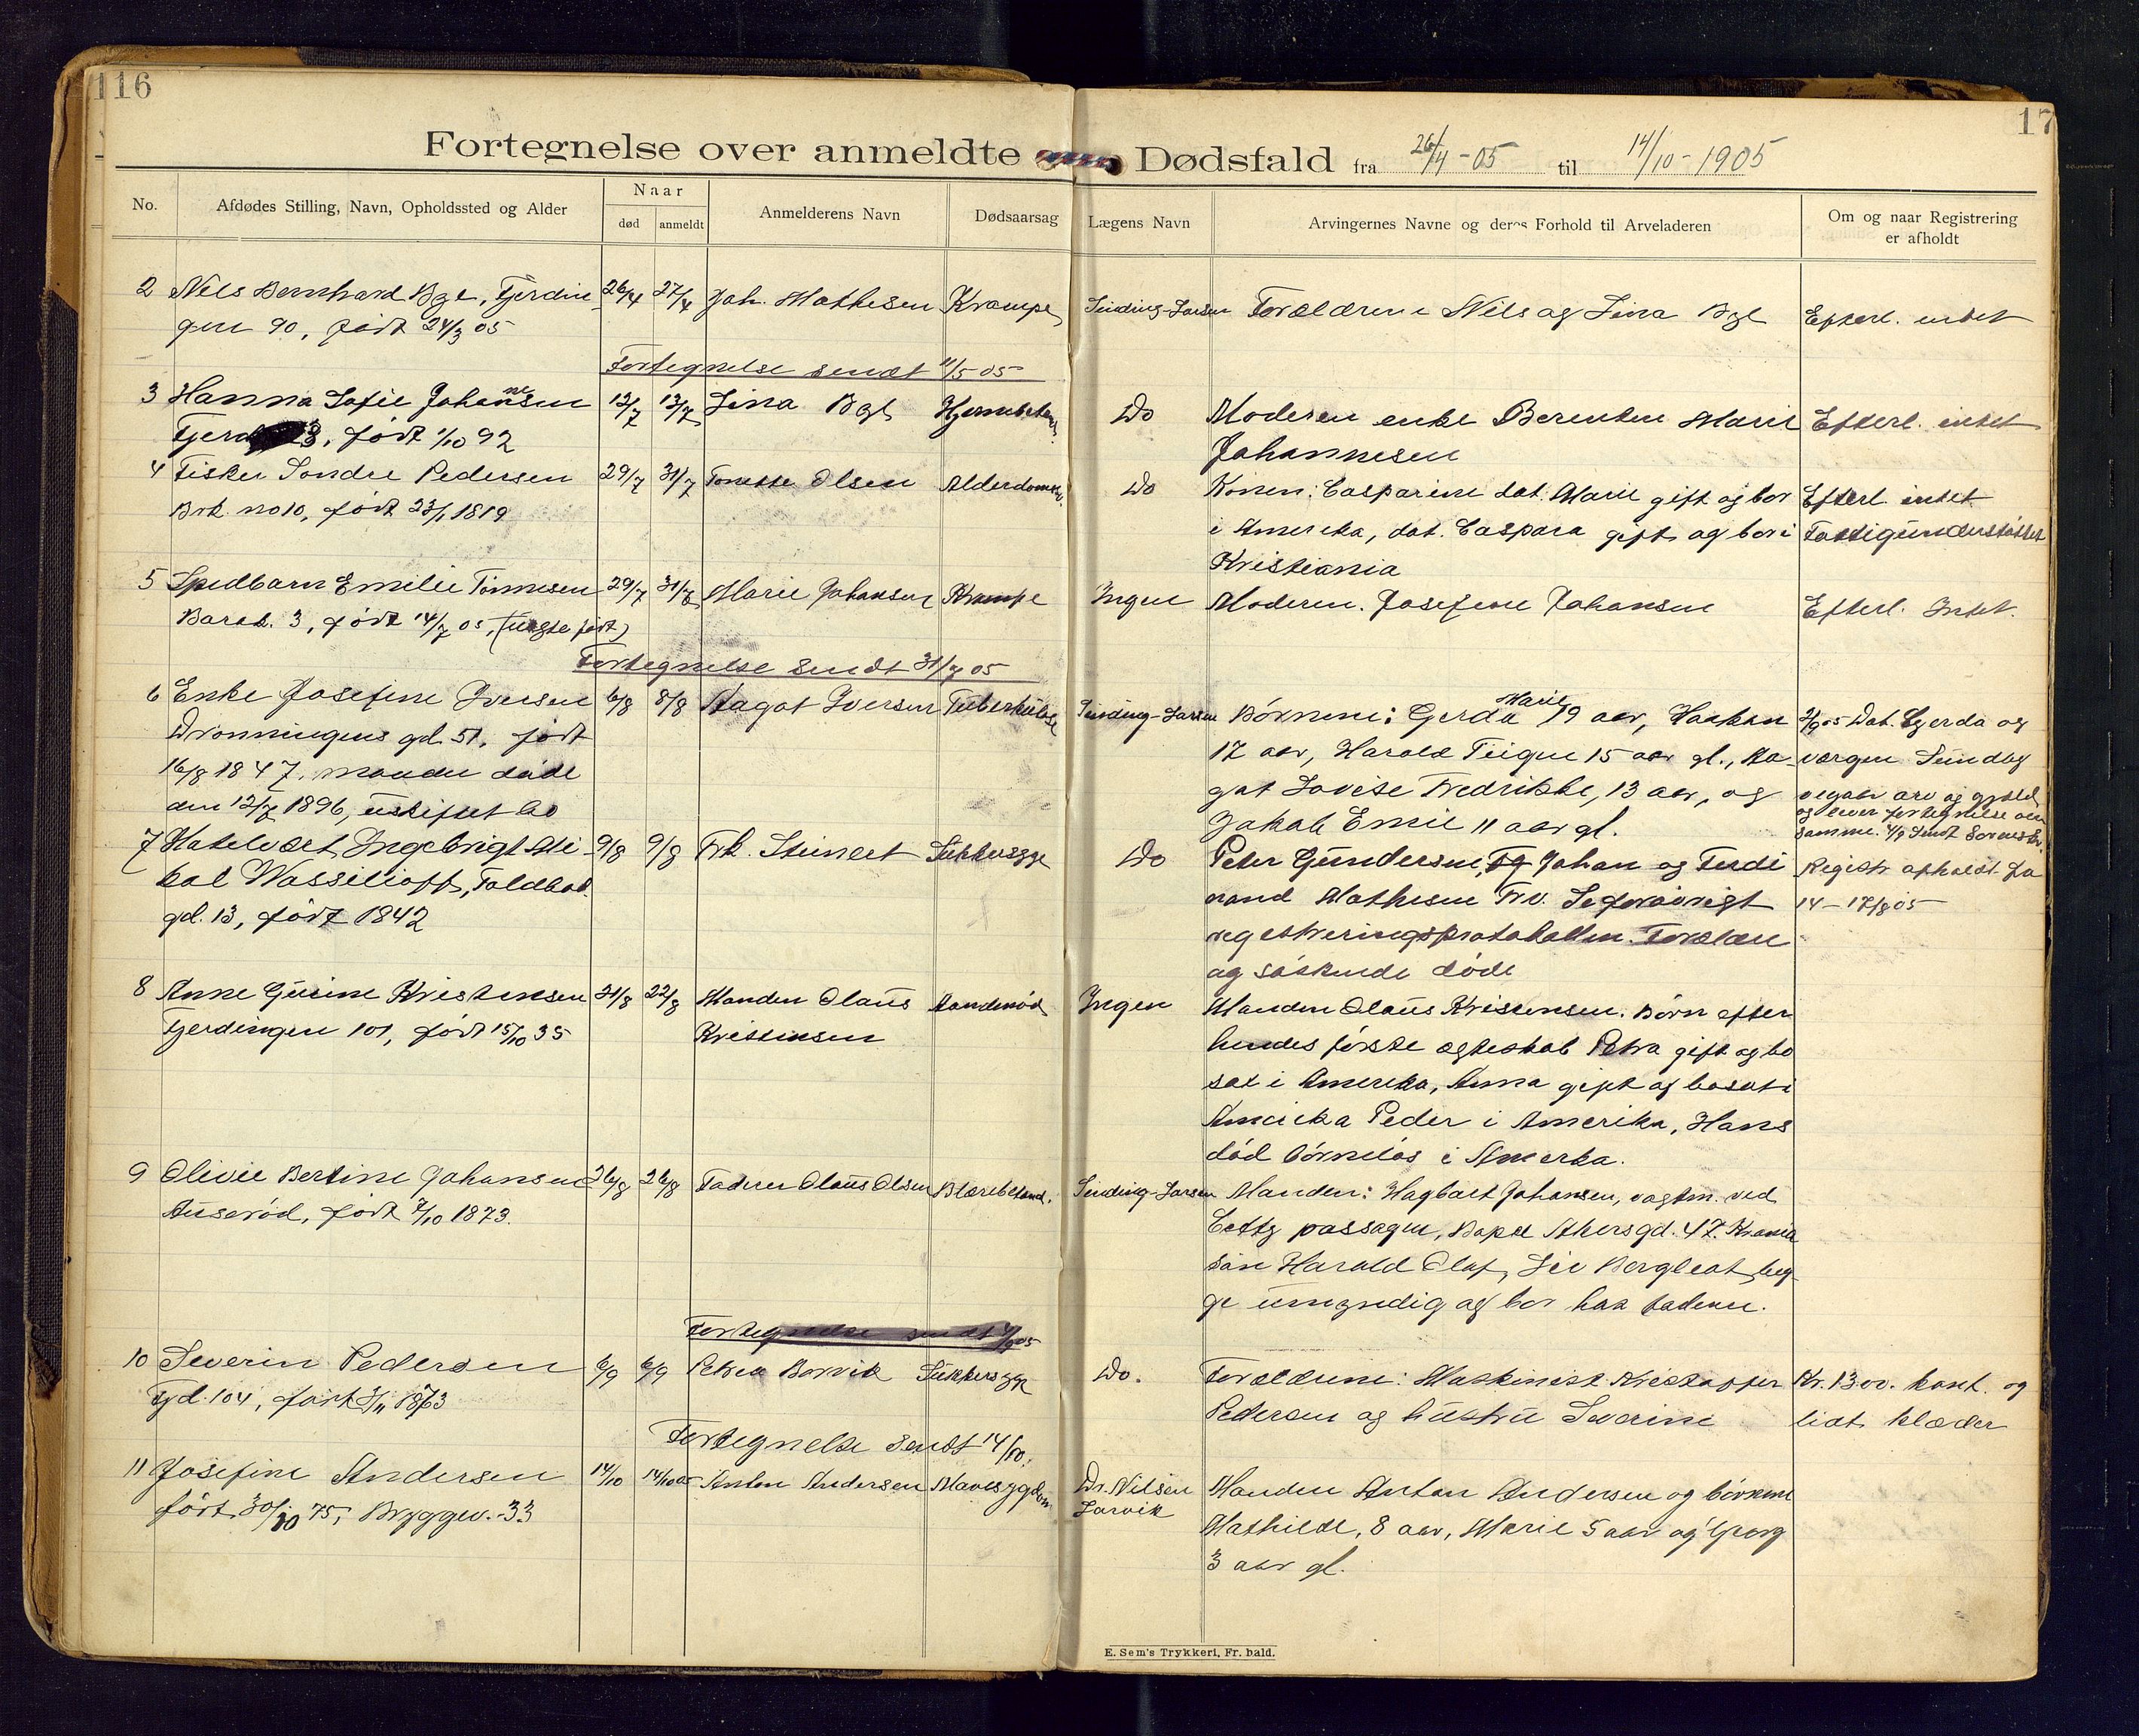 116
17
Fortegnelse over anmeldte Dødsfald fra 26/4 - 05 til 14/10 - 1905
No. Afdødes Stilling, Navn, Opholdssted og Alder Naar død anmeldt Anmelderens Navn Dødsaarsag Lægens Navn Arvingernes Navne og deres Forhold til Arveladeren Om og naar Registrering er afholdt
2 Nils Bernhard Bge, Tjerdin 26/4 27/4 Joh. Mathisen Krampe Sinding-Larsen Forældrene Nils og Lina Efterl. intet
gen 90, født 24/3 05
Fortegnelse sendt 11/5 05
3 Hanna Sofie Johannesen 12/7 13/7 Lina Hjernebeten Do Moderen enke Berentine Marie Efterl. intet
Tjerd 23, født 1/10 92 Johannesen
4 Fisker Sondre Pedersen 29/7 31/7 Tonette Olsen Alderdom Do Konen: Casparine dat. Marie gift og bor Efterl intet
Brk. no 10, født 23/1 1819 i Amerika, dat. Caspara gift og bor i Fattigunderstøttet
Kristiania
5 Spedbarn Emilie Tönnesen 29/7 31/7 Marie Johansen Krampe Ingen Moderen. Josefine Johansen Efterl. Intet.
Barak. 3, født 14/7 05, (uægte født)
Fortegnelse sendt 31/7 05
6 Enke Josefine Iversen 6/8 8/8 Aagot Iversen Tuberkulose Sinding-Larsen Børnene: Gerda Marie 19 aar, Haakon 2/9 05 Dat. Gerda og
Dronningens gd. 51, født 17 aar, Harald Trigve 15 aar gl., Aa- værgen Sundby
16/8 1847, manden døde got Lovise Fredrikke, 13 aar, og vegaar arv og gjæld
den 12/7 1896, uskiftet bo Jakob Emil 11 aar gl. og lever fortegnelse over
samme. 4/9 Sendt Sorenskr.
7 Kateleort Ingebrigt Mi 9/8 9/8 Frk. Steinert Sukkersyge Do Peter Gundersen, Johan og Ferdi Registr afholdt fra
kal Wassilioff, Toldbod nand Mathisen Frv. Se forøvrigt 14 - 17/8 05
gd. 13, født 1842 regestreringsprotokollen. Forældre
og søskende døde
8 Anne Gurine Kristensen 21/8 22/8 Manden Olaus Aandenød Ingen Manden Olaus Kristensen. Børn efter
Tjerdingen 101, født 15/10 35 Kristensen hendes første ægteskab Petra gift og bo
sat i Amerika, Anna gift og bosat i
Amerika Peder i Amerika, Hans
død børneløs i Amerka.
9 Olivie Bertine Johansen 26/8 26/8 Faderen Olaus Olsen Blærebetænd. Sinding-Larsen Manden: Hagbart Johansen, vagtm. ved
Auserød, født 7/10 1873. Citty passagen, Bopæl Akersgd. 47. Krania
søn Harald Olaf, Liv Bergliot, beg-
ge umyndig og bor hos faderen.
Fortegnelse sendt 4/9 05
10 Severin Pedersen 6/9 6/9 Petrea Borvik Sukkersyge Do. Forældrene: Maskinist Kristoffer Kr. 1300. kont. og
Tjd. 104, født 3/11 1873 Pedersen og hustru Severine lidt klæder
Fortegnelse sendt 14/10.
11 Josefine Andersen 14/10 14/10 05 Anton Andersen Mavesygdom Dr. Nilsen Manden Anton Andersen og børnene
født 30/10 75, Bryggev. 33 Larvik Mathilde, 8 aar, Marie 5 aar og Georg
3 aar gl.
E. Sem's Trykkeri, Fr. hald.